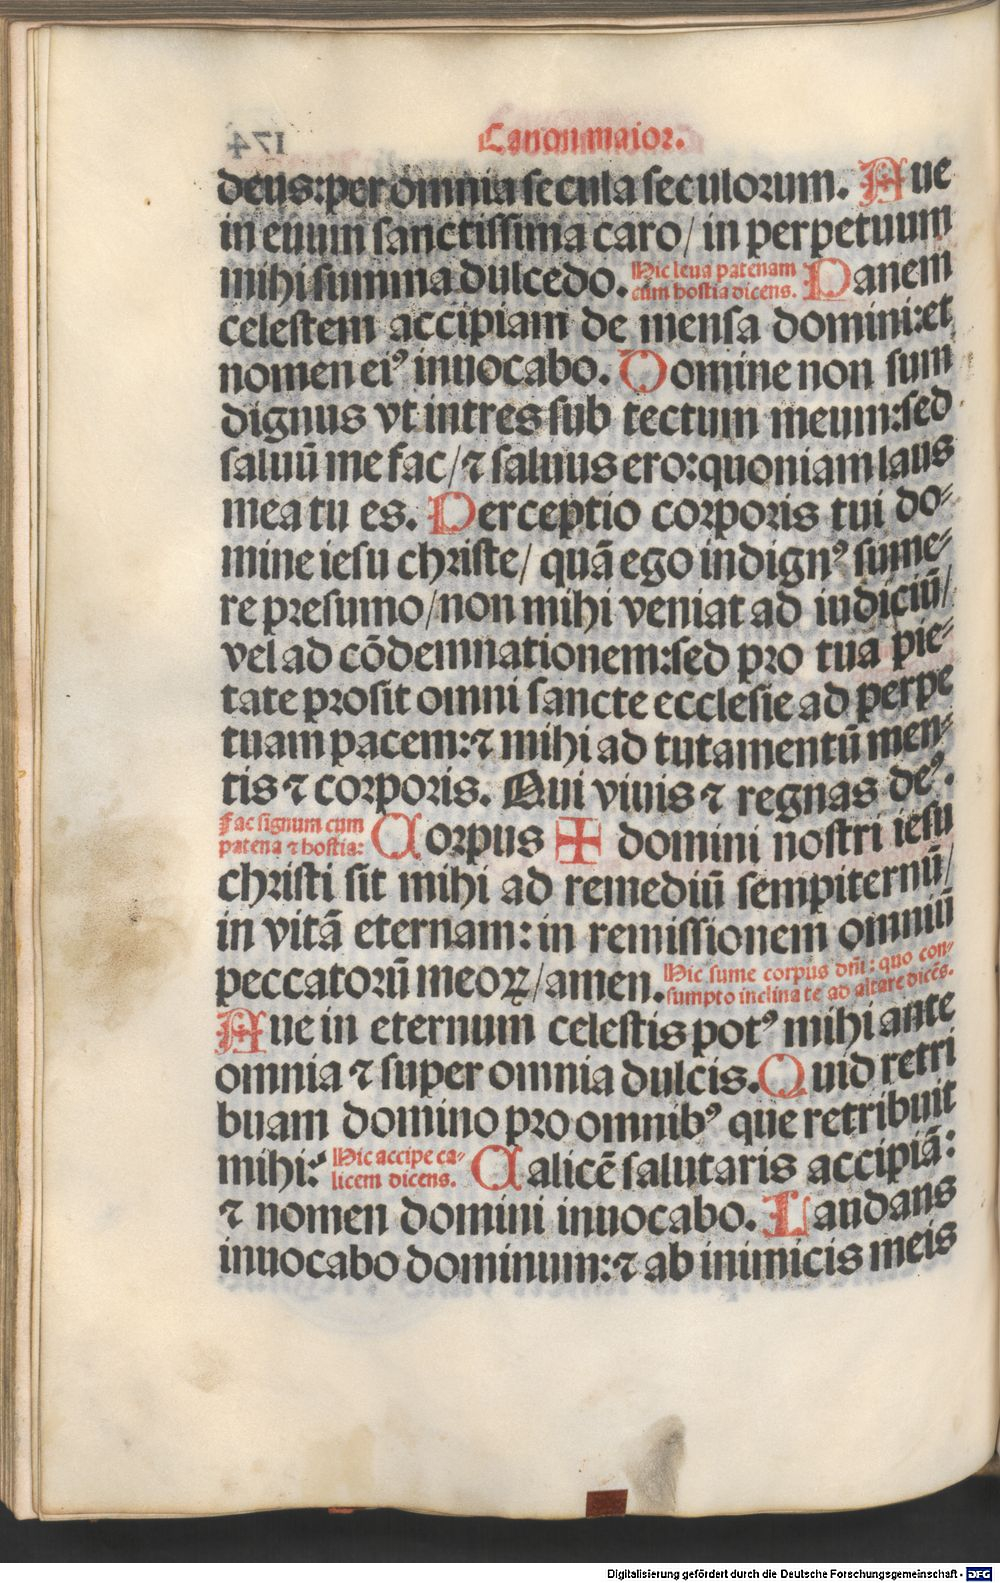 Canon maior.
deus: per omnia secula seculorum. Aue
in euum sanctissima caro/ in perpetuum
mihi summa dulcedo. Hic leua patenam
cum hostia dicens. Panem
celestem accipiam de mensa domini: et
nomen eiꝰ inuocabo. Domine non sum
dignus vt intres sub tectum meum: sed
saluū me fac/ ⁊ saluus ero: quoniam laus
mea tu es. Perceptio corporis tui do-
mine iesu christe/ quā ego indignꝰ sume-
re presumo/ non mihi veniat ad iudiciū/
vel ad cōdemnationem: sed pro tua pie-
tate prosit omni sancte ecclesie ad perpe
tuam pacem: ⁊ mihi ad tutamentū men-
tis ⁊ corporis. Qui viuis ⁊ regnas deꝰ.
Fac signum cum
patena ⁊ hostia: Corpus ✠ domini nostri iesu
christi sit mihi ad remediū sempiternū/
in vitā eternam: in remissionem omniū
peccatorū meoꝝ/ amen. Hic sume corpus dn̄i: quo con-
sumpto inclina te ad altare dicēs.
Aue in eternum celestis potꝰ mihi ante
omnia ⁊ super omnia dulcis. Quid retri
buam domino pro omnibꝰ que retribuit
mihi: Hic accipe ca-
licem dicens. Calicē salutaris accipiā:
⁊ nomen domini inuocabo. Laudans
inuocabo dominum: ⁊ ab inimicis meis
Digitalisierung gefördert durch die Deutsche Forschungsgemeinschaft - DFG